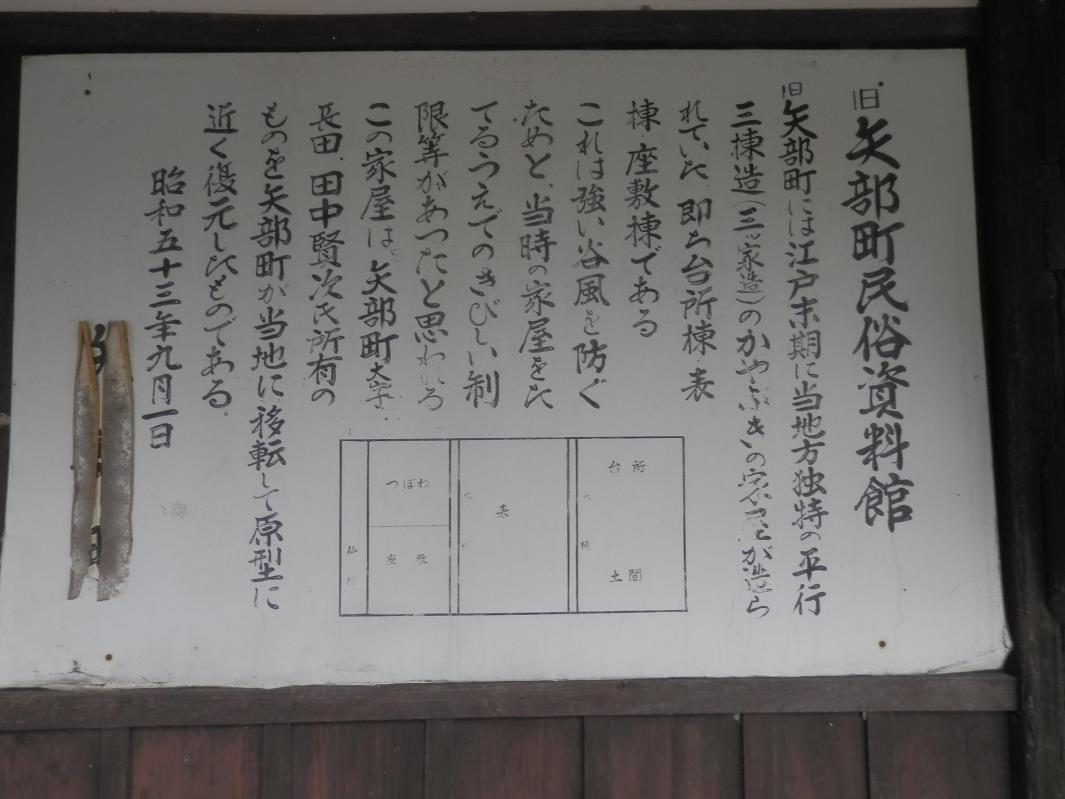 旧矢部町民俗資料館
旧矢部町には江戸末期に当地方独特の平行
三棟造(三ッ家造)のかやぶきの家屋が造ら
れていた 即ち台所棟 表
棟 座敷棟である
これは強い谷風を防ぐ
ためと、当時の家屋をた
てるうえでのきびしい制
限等があつたと思われる
この家屋は 矢部町大字
長田、田中賢次氏所有の
ものを矢部町が当地に移転して原型に
近く復元したものである
昭和五十三年九月一日
台所
土間
表
つぼわ
座敷
仏